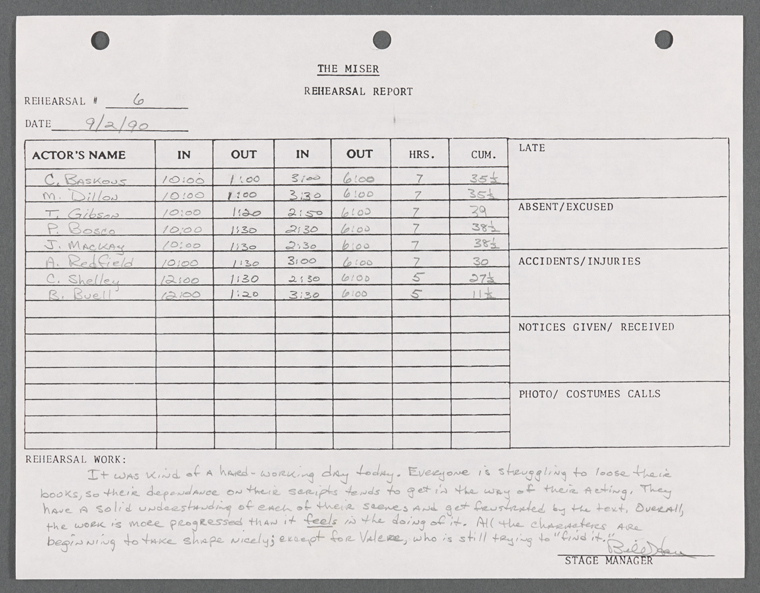 THE MISER
REHEARSAL REPORT
REHEARSAL # 6
DATE 9/2/90
ACTOR'S NAME IN OUT IN OUT HRS. CUM. LATE
C. Baskous 10:00 1:00 3:00 6:00 7 35½
M. Dillon 10:00 1:00 3:30 6:00 7 35½
T. Gibson 10:00 1:20 2:50 6:00 7 39
ABSENT/EXCUSED
P. Bosco 10:00 1:30 2:30 6:00 7 38½
J. Mackay 10:00 1:30 2:30 6:00 7 38½
A. Redfield 10:00 1:30 3:00 6:00 7 30
ACCIDENTS/INJURIES
C. Shelley 12:00 1:30 2:30 6:00 5 27½
B. Buell 12:00 1:20 3:30 6:00 5 11½
NOTICES GIVEN/ RECEIVED
PHOTO/ COSTUMES CALLS
REHEARSAL WORK:
It was kind of a hard-working day today. Everyone is struggling to loose their
books, so their dependance on their scripts tends to get in the way of their acting. They
have a solid understanding of each of their scenes and get frustrated by the text. Overall,
the work is more progressed than it feels in the doing of it. All the characters are
beginning to take shape nicely; except for Valere, who is still trying to "find it."
STAGE MANAGER